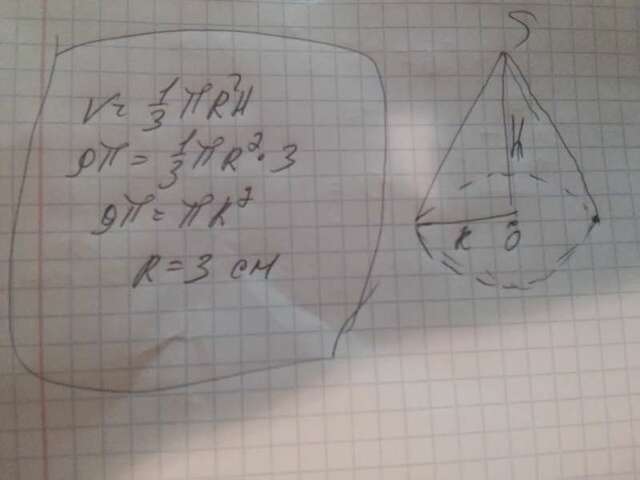 V = 1/3 πR²H
9π = 1/3 πR² · 3
9π = πR²
R = 3 см
S
H
R O